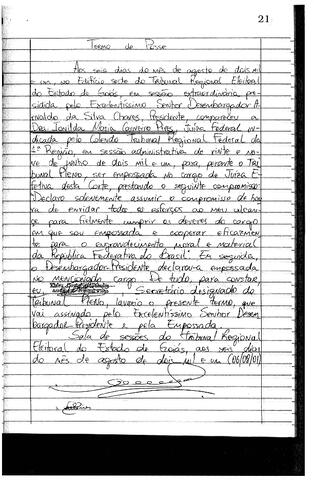 21
Termo de Posse
Aos seis dias do mês de agosto de dois mil
e um, no Edifício sede do Tribunal Regional Eleitoral
do Estado de Goiás, em sessão extraordinária, pre-
sidida pelo Excelentíssimo Senhor Desembargador A-
rnaldo da Silva Chaves, Presidente, compareceu a
Dra. Maria Carneiro Pires, Juíza Federal in-
dicada pelo Colendo Tribunal Regional Federal da
1ª Região, em sessão administrativa de vinte e no-
ve de junho de dois mil e um, para, perante o Tri-
bunal Pleno, ser empossada no cargo de Juíza E-
fetiva desta Corte, prestando o seguinte compromisso:
"Declaro solenemente assumir o compromisso de hon-
ra de envidar todos os esforços ao meu alcan-
ce para fielmente cumprir os deveres do cargo
em que sou empossada e cooperar eficazmente
para o engrandecimento moral e material
da República Federativa do Brasil". Em seguida,
o Desembargador-Presidente declarou empossada
no mencionado cargo. De tudo, para constar,
eu, Secretário designado do
Tribunal Pleno, lavrei o presente termo, que
vai assinado pelo Excelentíssimo Senhor Desem-
bargador-Presidente e pela Empossada.
Sala de sessões do Tribunal Regional
Eleitoral do Estado de Goiás, aos seis dias
do mês de agosto de dois mil e um (06/08/01)